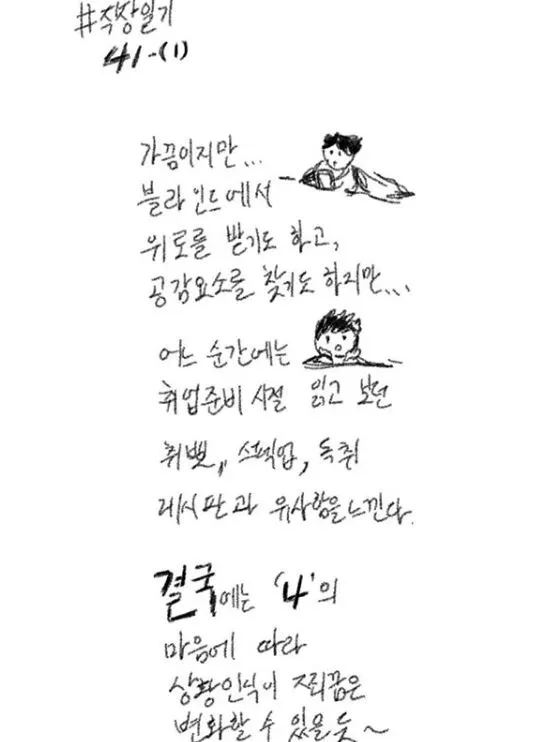 #직장일기
41-(1)
가끔이지만...
블라인드에서
위로를 받기도 하고,
공감요소를 찾기도 하지만...
어느 순간에는
취업준비 시절 읽고 보던
취뽀, 스펙업, 독취
게시판과 유사함을 느낀다.
결국에는 '나'의
마음에 따라
상황인식이 조금은
변화할 수 있을 듯~